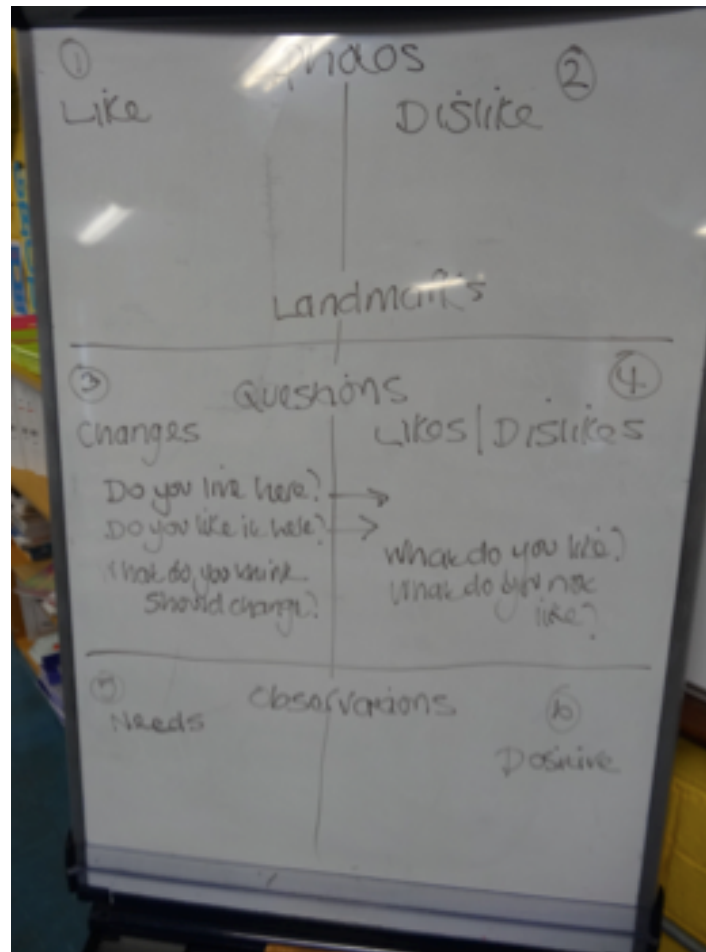 ① Photos ②
Like Dislike
Landmarks
③ Questions ④
Changes Likes | Dislikes
Do you live here? →
Do you like it here? →
What do you like?
What do you think
What do you not
should change?
like?
⑤ Observations ⑥
Needs
Positive